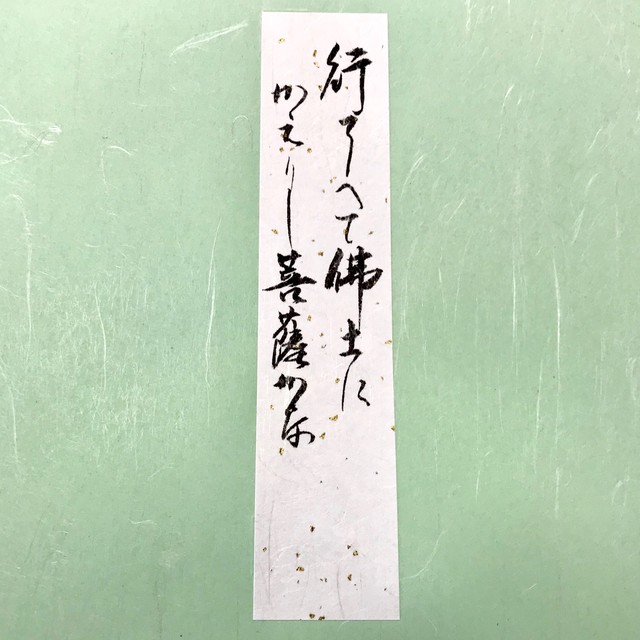 行了へて佛土に
かえりし菩薩かな